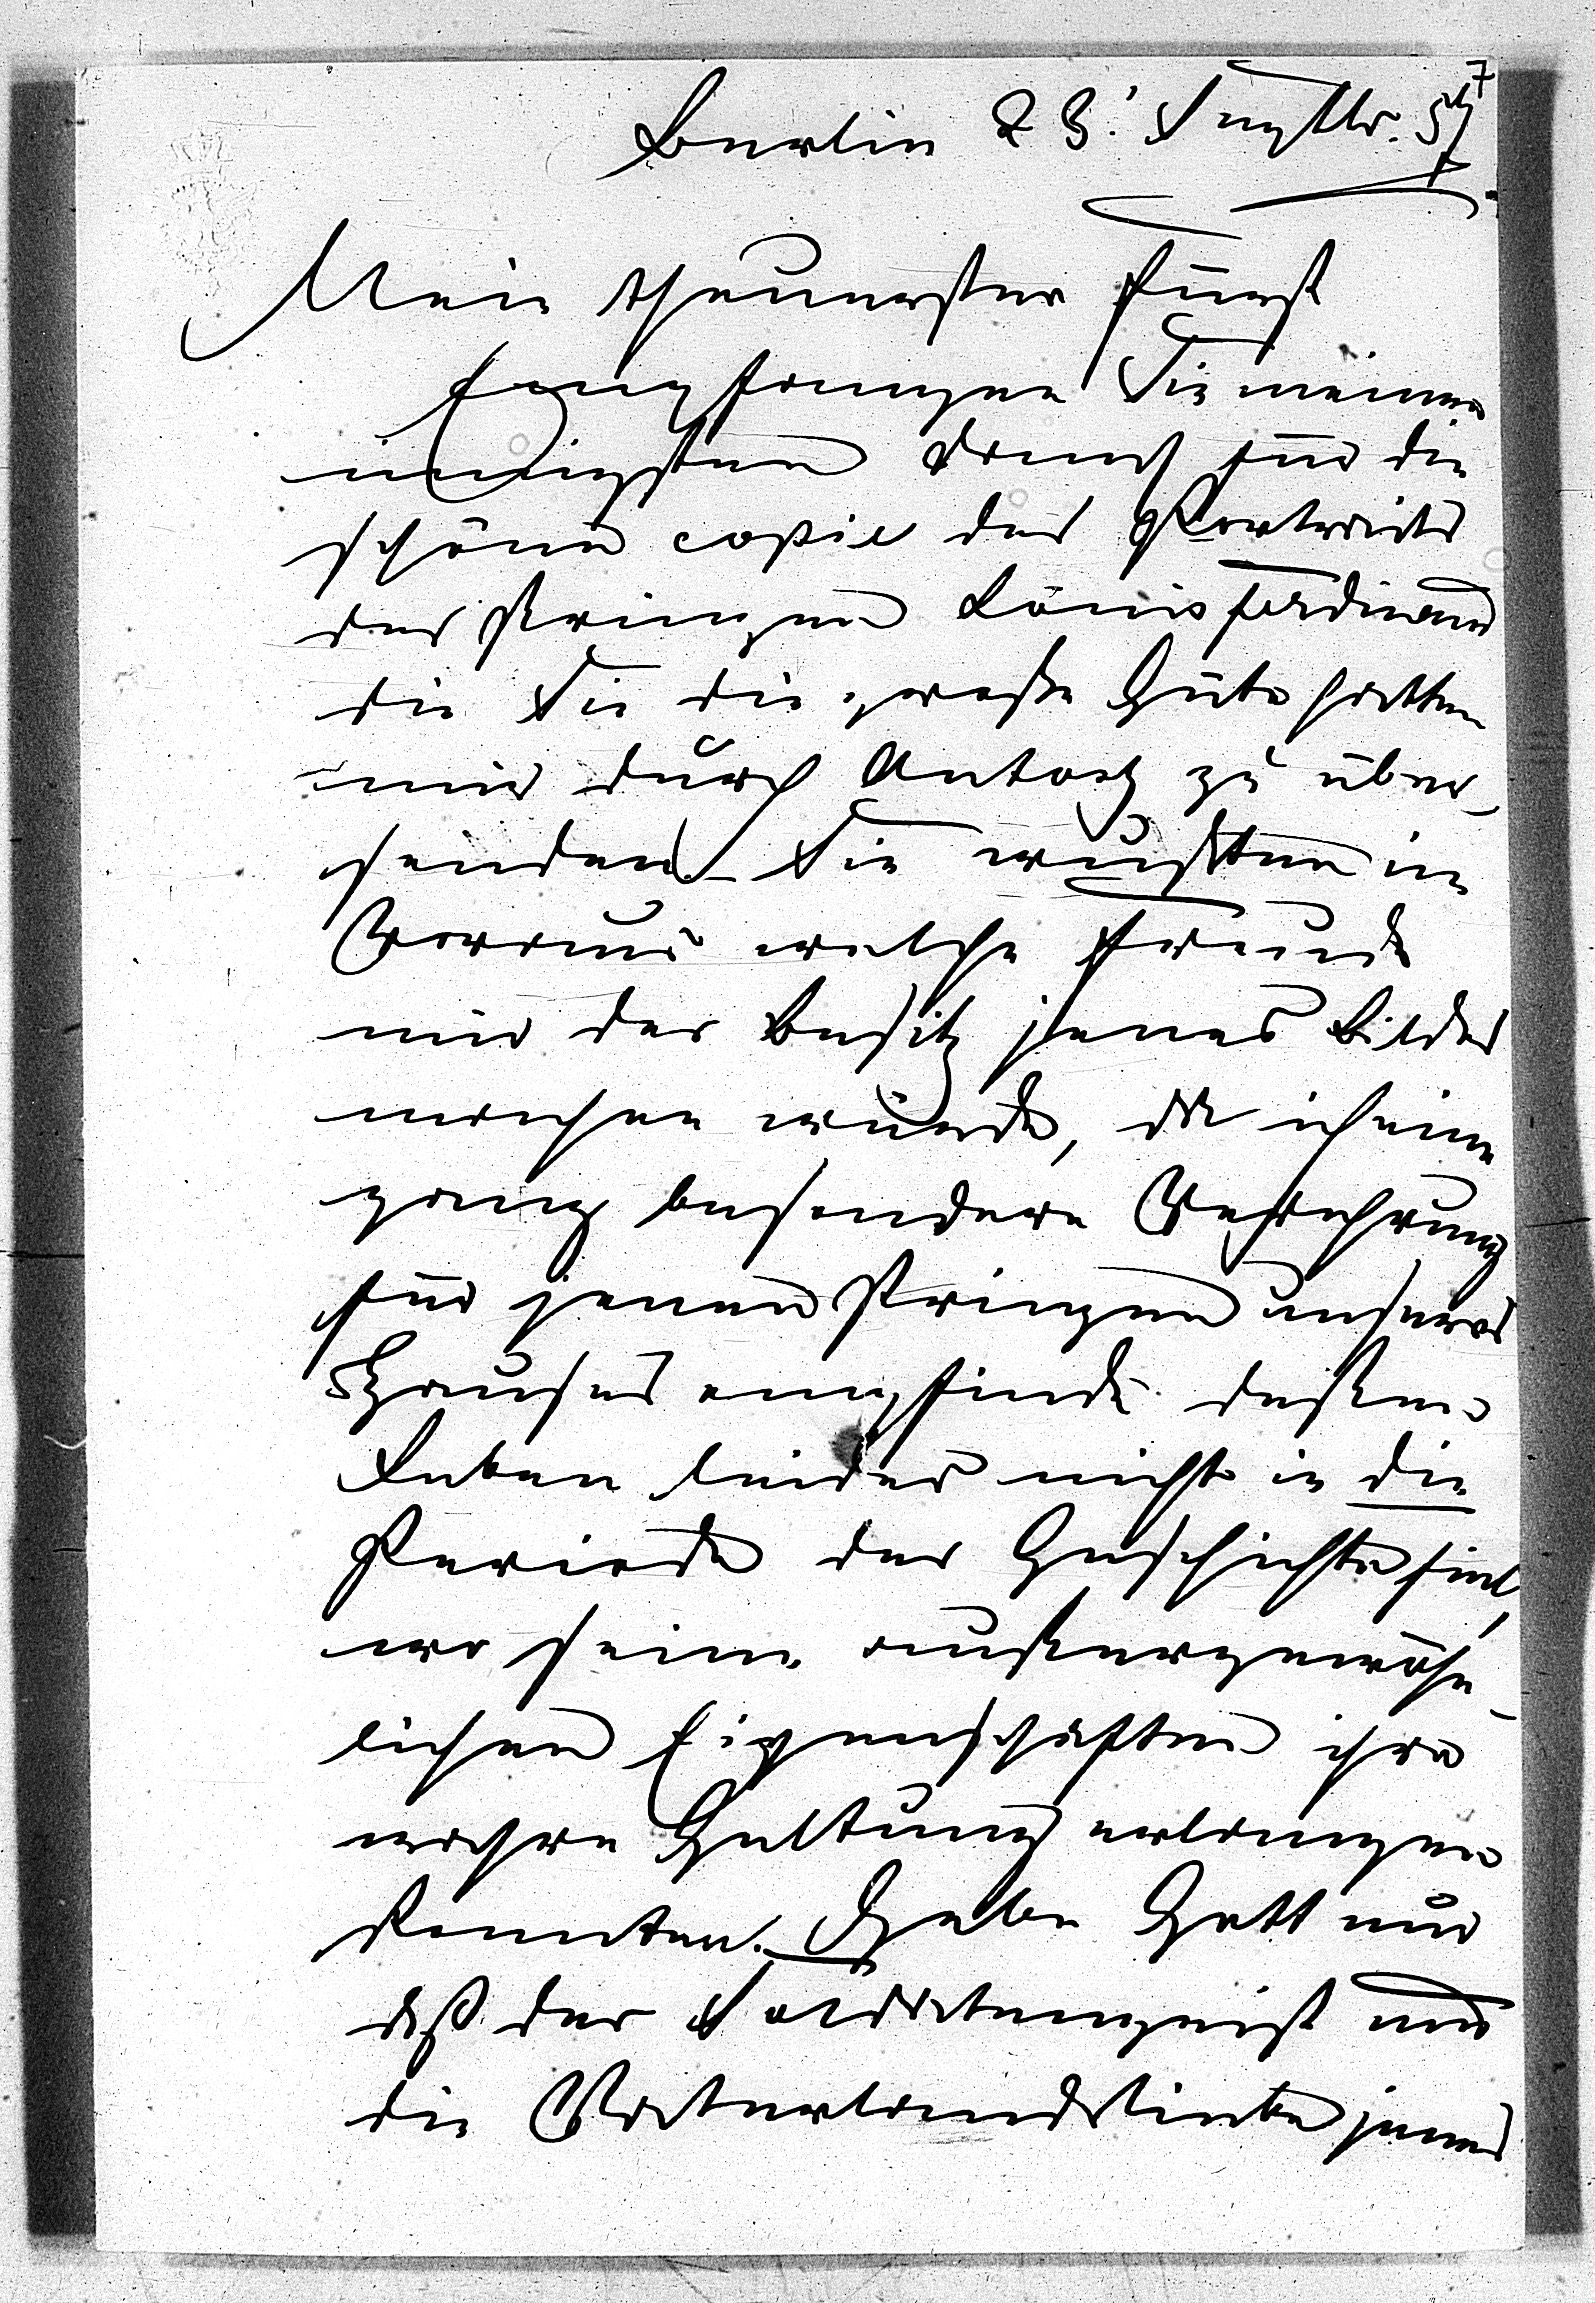 Berlin 23' Septbr. 57
Mein theuerster Fürst
Empfangen Sie meinen
innigsten Dank für die
schöne copie des Portraits
des Prinzen Louis Ferdinand
die Sie die große Güte hatten
mir durch zu über-
senden. Sie wußten im
Voraus welche Freude
mir der Besitz jenes Bildes
machen würde, da ich eine
ganz besondere Verehrung
für jenen Prinzen unseres
Hauses empfinde deßen
Leben leider nicht in die
Periode der Geschichte fiel,
wo seine außergewöhn-
lichen Eigenschaften ihre
wahre Geltung erlangen
konnten. Gebe Gott nur
daß der Soldatengeist und
die Vaterlandsliebe jenes